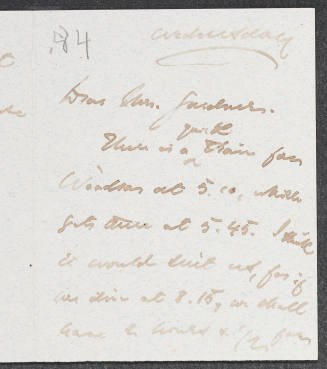 .84
Wednesday
Dear Mrs. Gardner.
quick
There is a train for
Woods at 5.10, which
gets there at 5.45. I think
it would suit us, for if
we dine at 8.15, we shall
have 2 hours & 1/2 for